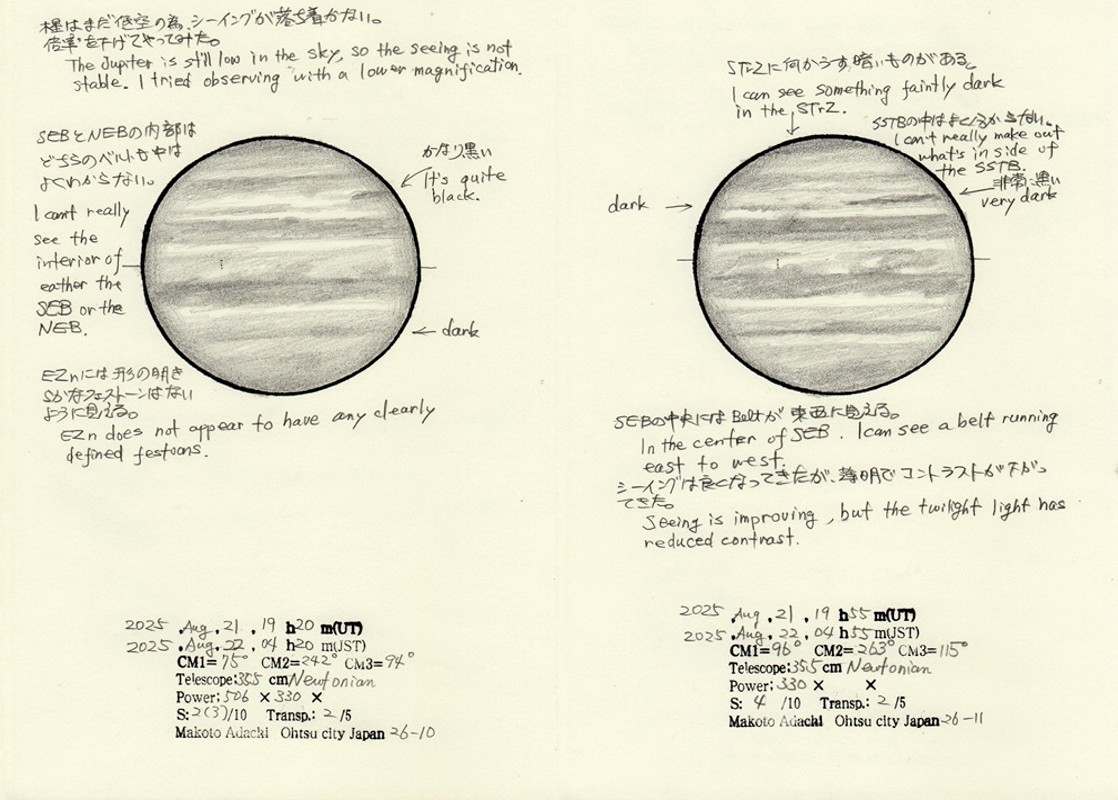 木星はまだ低空の為、シーイングが落ち着かない。
倍率を下げてやってみた。
The Jupiter is still low in the sky, so the seeing is not
stable. I tried observing with a lower magnification.
SEBとNEBの内部は
どちらのベルトも中は
よくわからない。
I can't really
see the
interior of
eather the
SEB or the
NEB.
かなり黒い
It's quite
black.
dark
EZnには形の明き
らかなフェストーンはない
ように見える。
EZn does not appear to have any clearly
defined festoons.
2025 .Aug. 21 . 19 h20 m(UT)
2025 .Aug. 22 . 04 h20 m(JST)
CM1= 75° CM2=242° CM3= 94°
Telescope:355 cm Newtonian
Power: 506 × 330 ×
S: 2(3)/10 Transp.: 2 /5
Makoto Adachi Ohtsu city Japan 26-10
STrZに何かうす暗いものがある。
I can see something faintly dark
in the STrZ.
SSTBの中はよくわからない。
I can't really make out
what's in side of
the SSTB.
非常に黒い
very dark
dark
SEBの中央にはBeltが東西に見える。
In the center of SEB. I can see a belt running
east to west.
シーイングは良くなってきたが、薄明でコントラストが下がっ
てきた。
Seeing is improving, but the twilight light has
reduced contrast.
2025 .Aug. 21 . 19 h55 m(UT)
2025 .Aug. 22 . 04 h55 m(JST)
CM1= 96° CM2= 263° CM3= 115°
Telescope:355 cm Newtonian
Power: 330 × ×
S: 4 /10 Transp.: 2 /5
Makoto Adachi Ohtsu city Japan 26-11